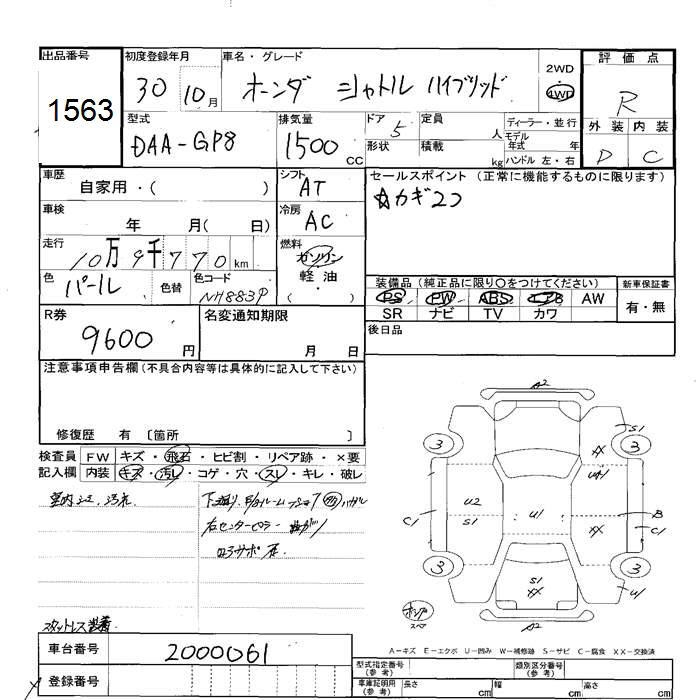 出品番号
1563
初度登録年月
30 10月
車名・グレード
ホンダ シャトル ハイブリッド
2WD
・
4WD
評価点
R
外装 内装
D C
型式
DAA-GP8
排気量
1500 CC
ドア 5
定員 人
形状
積載 kg
ディーラー・並行
モデル年式 年
ハンドル 左・右
車歴
自家用・( )
シフト
AT
車検
年 月( 日)
冷房
AC
走行
10万9千770km
燃料
ガソリン
・
軽油
・
( )
色
パール
色替
色コード
NH883P
セールスポイント (正常に機能するものに限ります)
☆カギ2コ
装備品 (純正品に限り○をつけてください)
PS PW ABS エアB AW
SR ナビ TV カワ
新車保証書
有・無
後日品
R券
9600円
名変通知期限
月 日
注意事項申告欄(不具合内容等は具体的に記入して下さい)
修復歴 有 〔箇所 〕
検査員記入欄
FW キズ・飛石・ヒビ割・リペア跡・×要
内装 キズ・汚れ・コゲ・穴・スレ・キレ・破レ
室内シミ、汚れ
右センターピラー
スタットレス装着
A2
3 3
S1
XX
U41
U2
S1
U1
C1
B
C1
XX
3 3
S1
XX
U1
A2
スペア
A-キズ E-エクボ U-凹み W-補修跡 S-サビ C-腐食 XX-交換済
車台番号
2000061
登録番号
型式指定番号(参考)
類別区分番号(参考)
車庫証明用(参考)
長さ cm
幅 cm
高さ cm